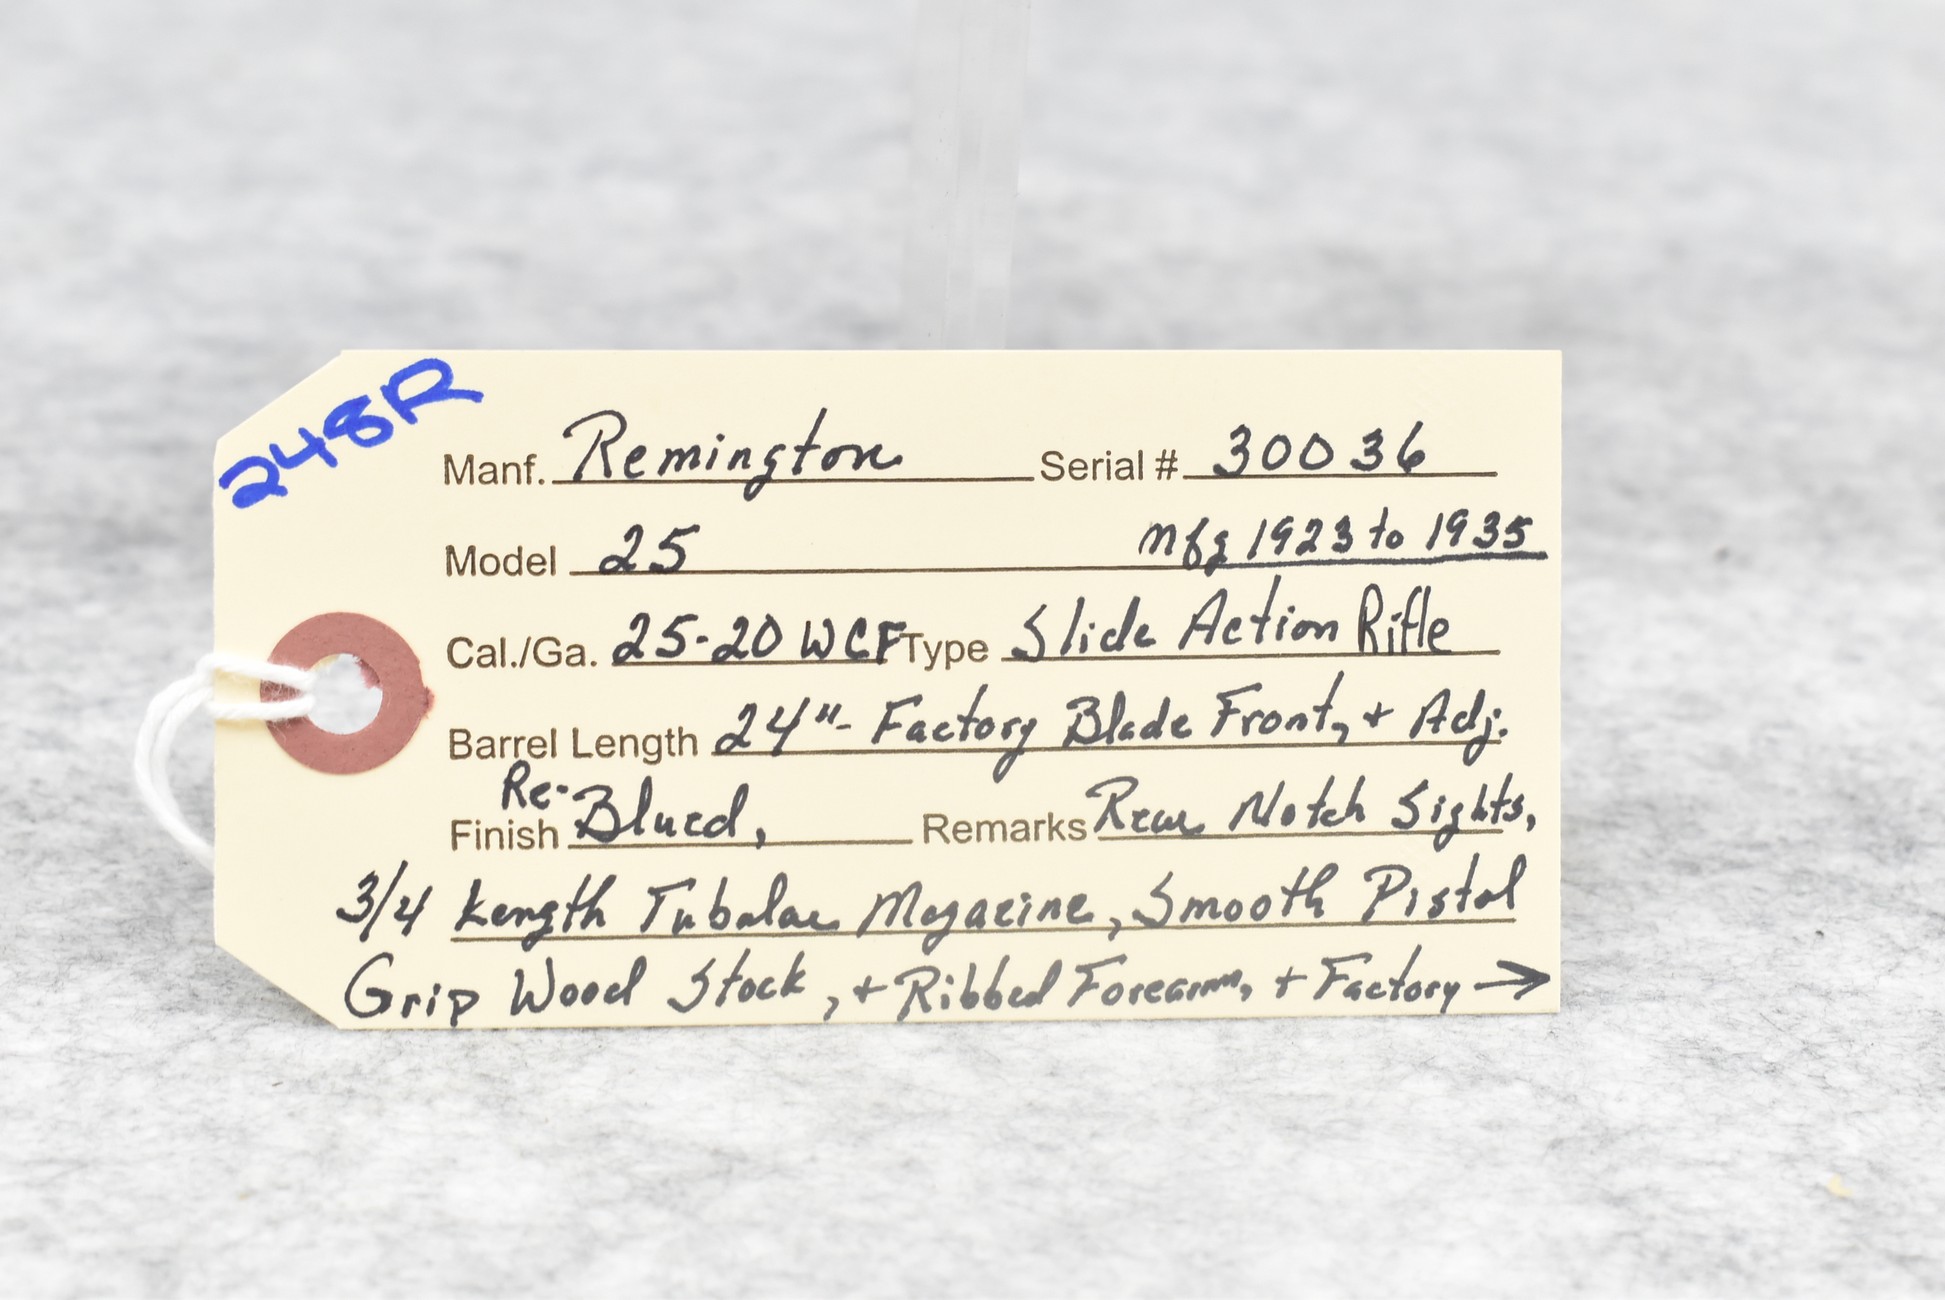 248R
Manf. Remington Serial # 30036
Model 25 Mfg 1923 to 1935
Cal./Ga. 25-20 WCF Type Slide Action Rifle
Barrel Length 24"- Factory Blade Front, + Adj.
Finish Re-Blued, Remarks Rear Notch Sights,
3/4 Length Tubular Magazine, Smooth Pistol
Grip Wood Stock, + Ribbed Forearm, + Factory →